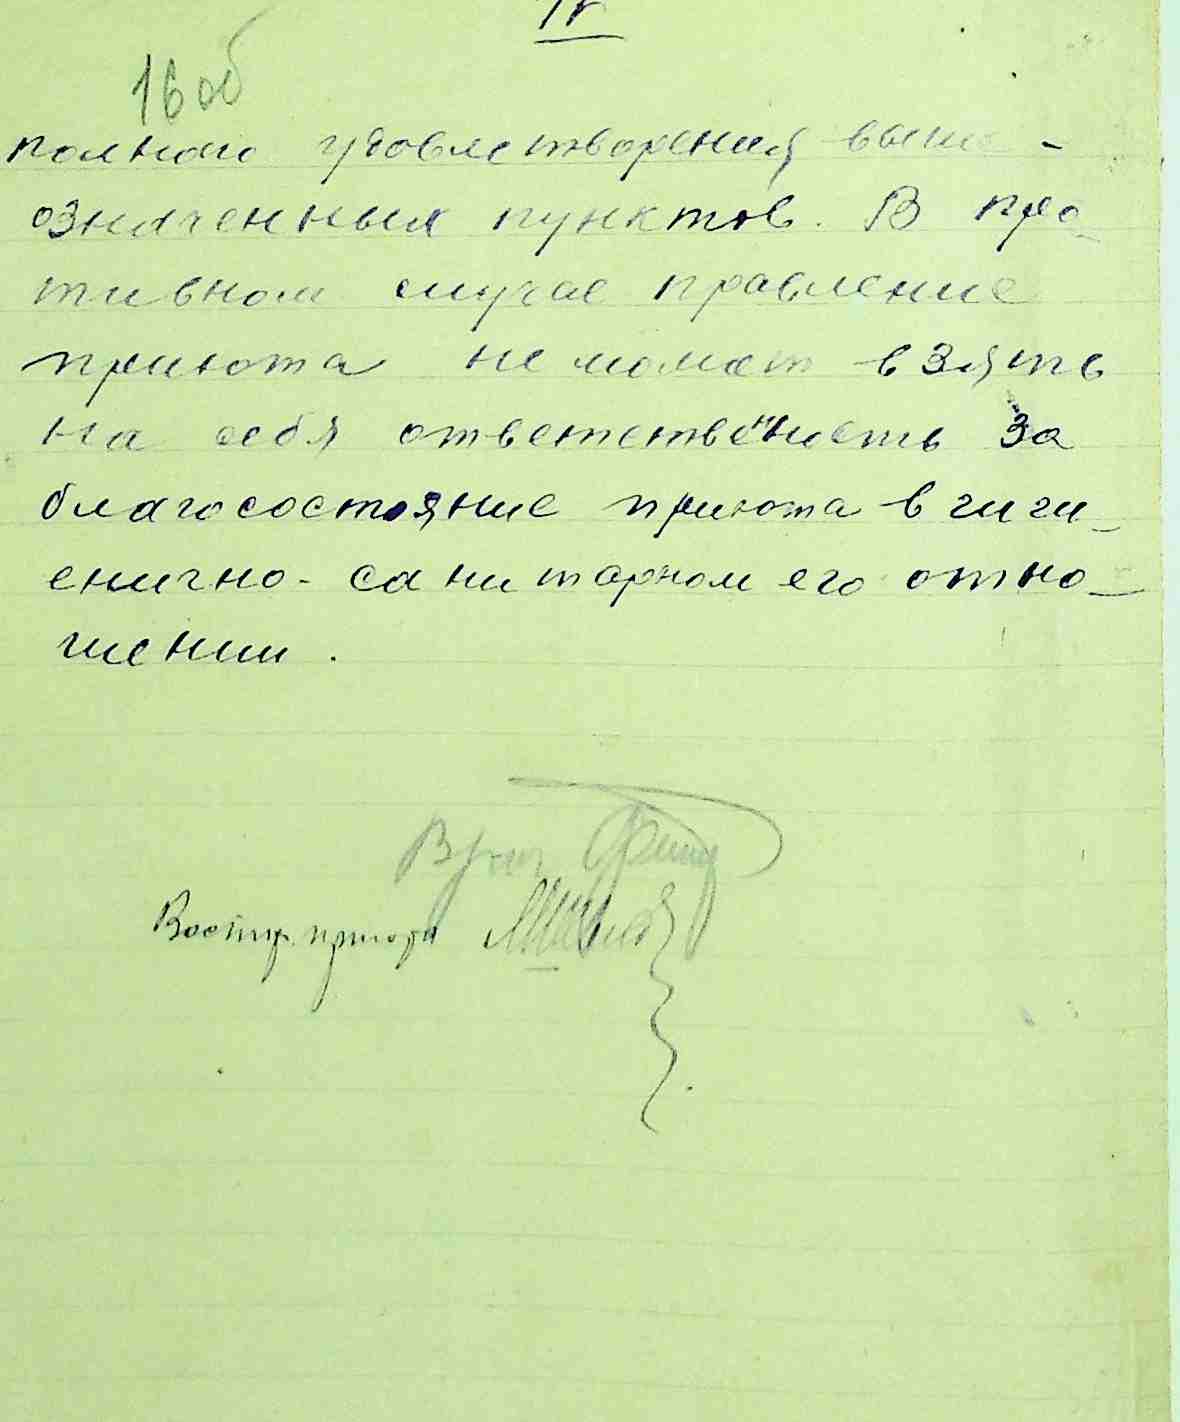 IV
16 об
полного удовлетворения выше-
означенных пунктов. В про-
тивном случае правление
приюта не может взять
на себя ответственность за
благосостояние приюта в гиги-
енично-санитарном его отно-
шении.
Врач
Воспит. приюта